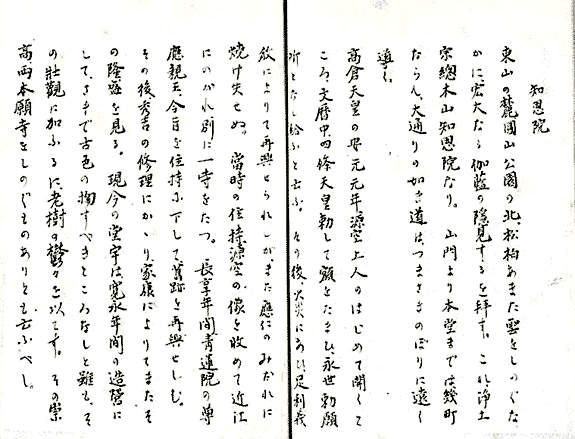 知恩院
東山の麓圓山公園の北、松柏あまた雲をしのぐな
かに、宏大なる伽藍の隠見するを拝す。これ浄土
宗總本山知恩院なり。山門より本堂までは幾町
ならん、大通りの如き道は、つまさきのぼりに遠く
導く。
高倉天皇の安元元年源空上人のはじめて開くて
ころ、文暦中四條天皇勅して額をたまひ永世勅願
所となし給ふと云ふ。その後、火災にあひ足利義
政によりて再興せられしが、また應仁のみだれに
焼け失せぬ。當時の住持源空の像を收めて近江
にのがれ別に一寺をたつ。長享年間青蓮院の尊
應親王、今旨を住持に下して舊跡を再興せしむ。
その後秀吉の修理にかゝり、家康によりてまたそ
の隆盛を見る。現今の堂宇は寛永年間の造營に
して、さまで古色の掬すべきところなしと雖も、そ
の壯觀に加ふるに、老樹の鬱々を以てす。その崇
高、両本願寺をしのぐものありとも云ふべし。